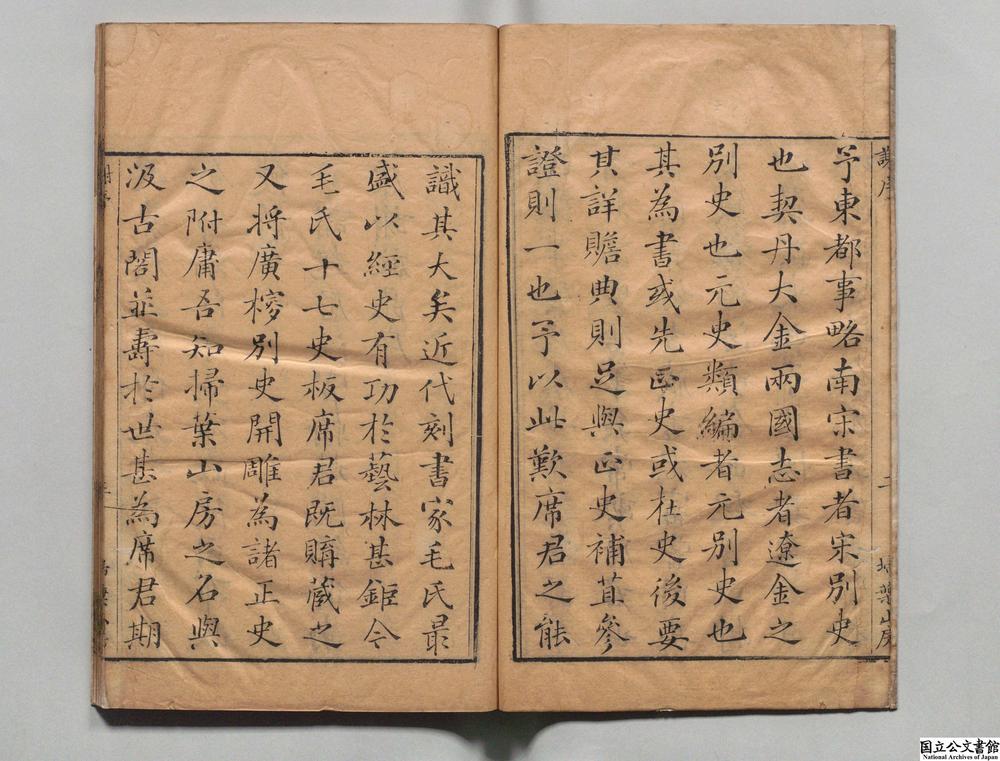 予東都事略南宋書者宋别史
也契丹大金兩國志者遼金之
别史也元史類編者元别史也
其為書或先正史或在史後要
其詳贍典則足與正史補苴參
證則一也予以此歎席君之能
識其大矣近代刻書家毛氏最
盛以經史有功於藝林甚鉅今
毛氏十七史板席君既購藏之
又将廣桜别史開雕為諸正史
之附庸吾知掃葉山房之名與
汲古閣並壽於世甚為席君期
二
掃葉山房
国立公文書館
National Archives of Japan